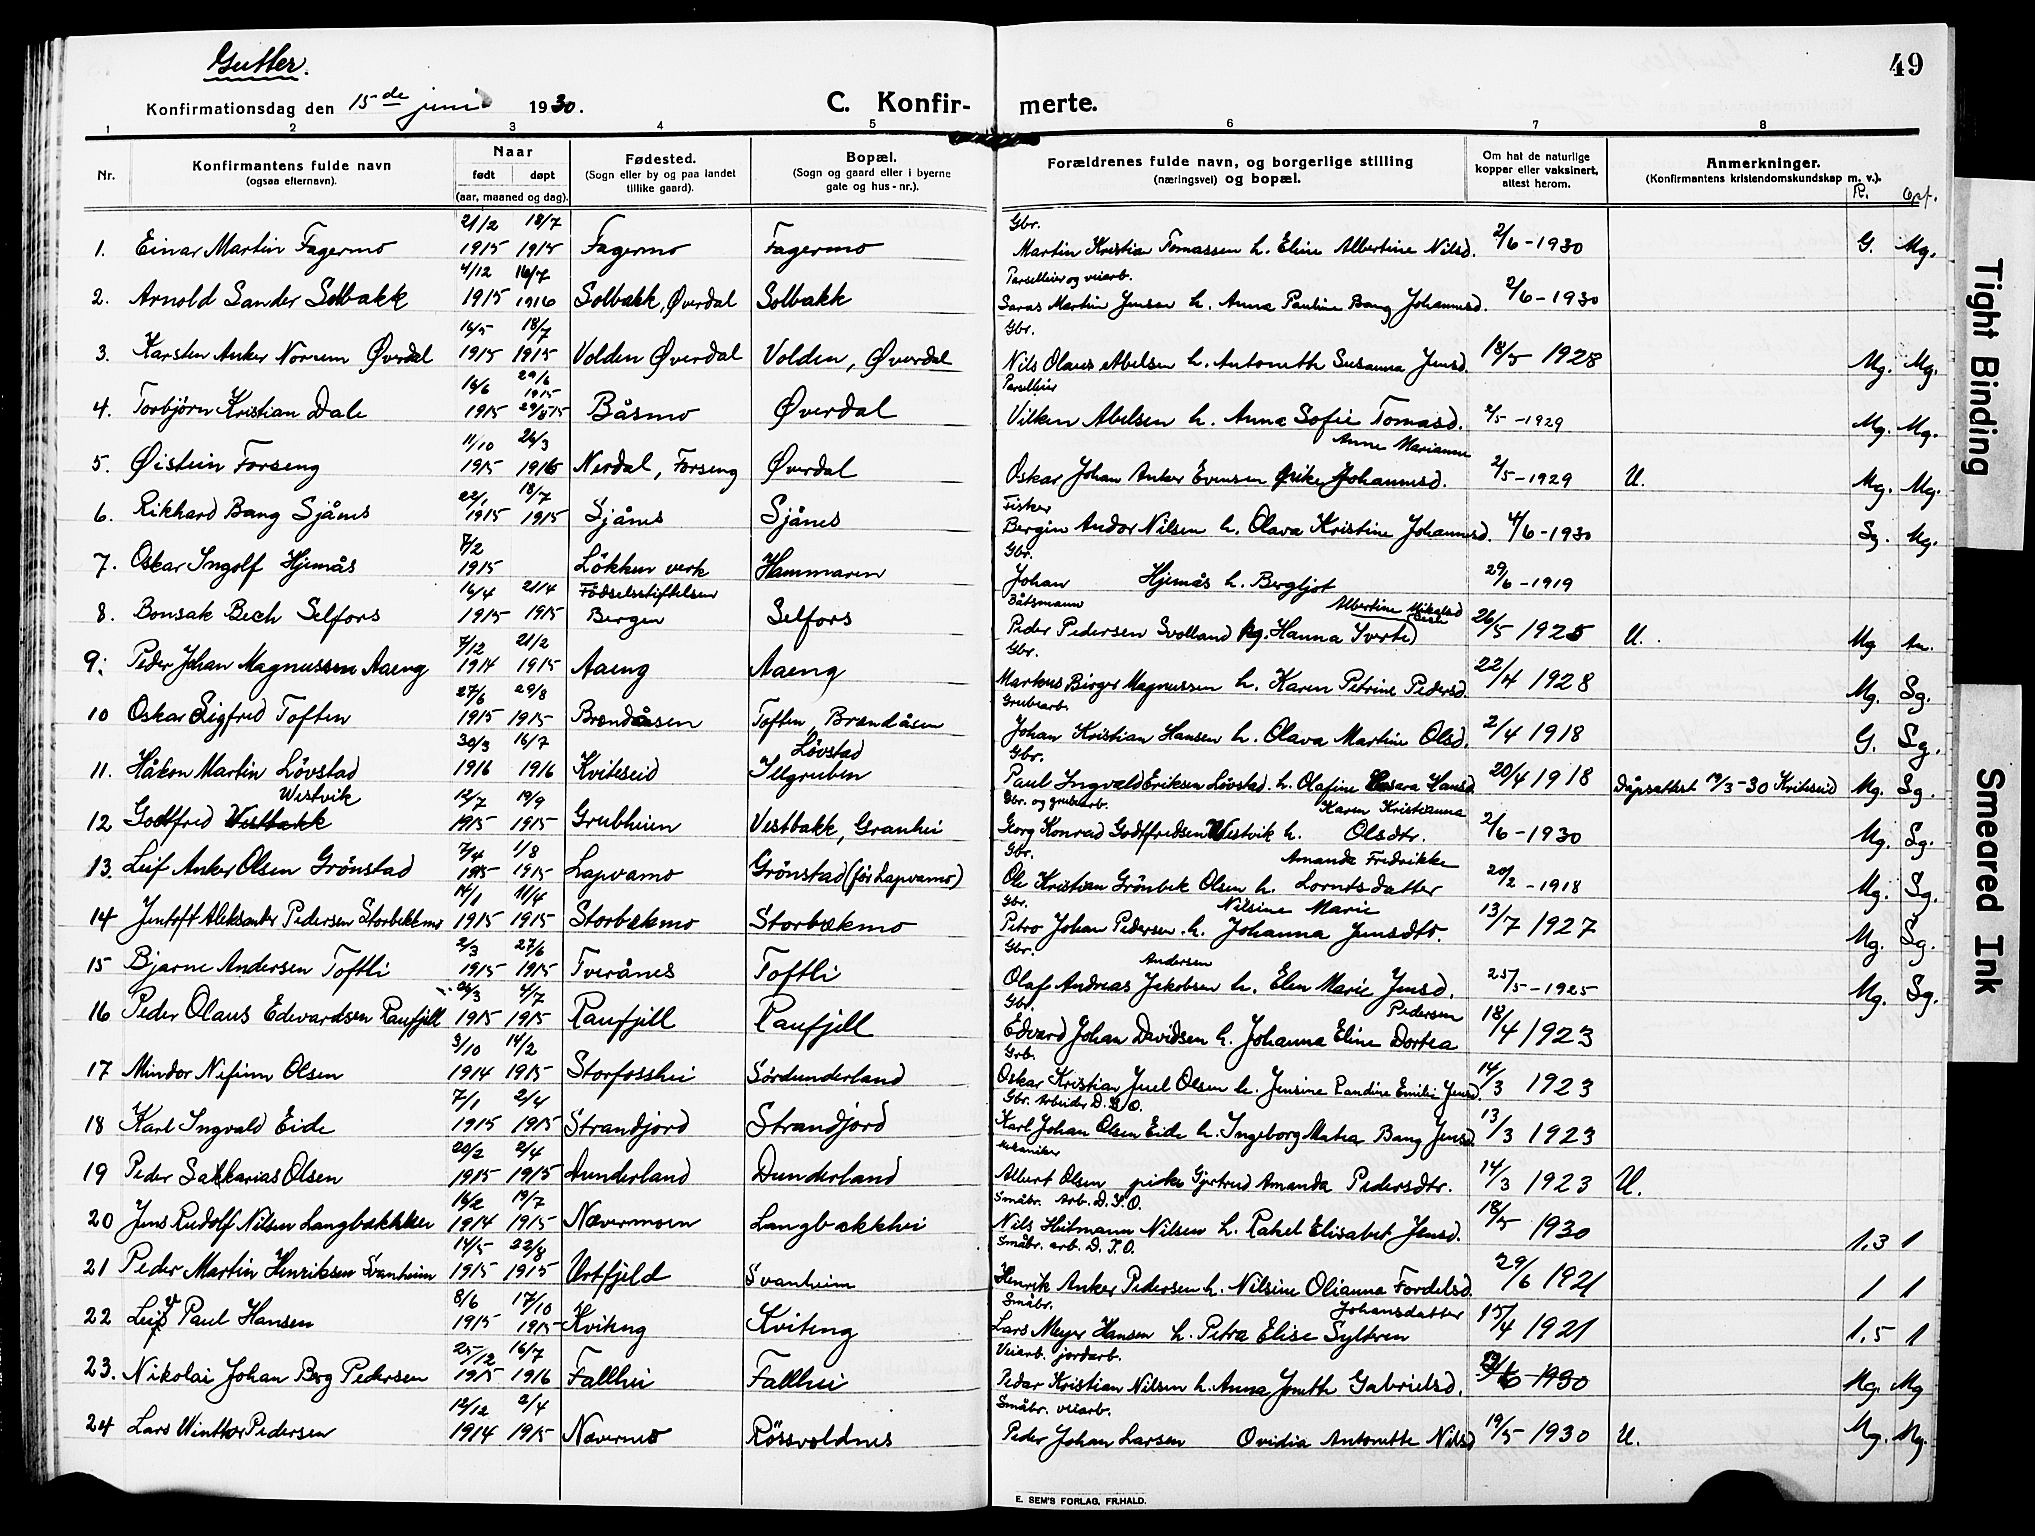 Gutter.
49
Konfirmationsdag den 15de juni 1930.
C. Konfir- merte.
1 2 3 4 5 6 7 8
Nr.
Konfirmantens fulde navn
(ogsaa efternavn).
Naar
født døpt
(aar, maaned og dag).
Fødested.
(Sogn eller by og paa landet
tillike gaard).
Bopæl.
(Sogn og gaard eller i byerne
gate og hus - nr.).
Forældrenes fulde navn, og borgerlige stilling
(næringsvei) og bopæl.
Om hat de naturlige
kopper eller vaksinert,
attest herom.
Anmerkninger.
(Konfirmantens kristendomskundskap m. v.).
21/2 18/7 Gbr.
1. Einar Martin Fagermo 1915 1915 Fagermo Fagermo Martin Kristia Tomassen h. Eline Albertine Nilsd. 2/6-1930 G. Mg.
4/12 16/7 Parsellier og veiarb.
2. Arnold Sander Solbakk 1915 1916 Solbakk, Øverdal Solbakk Martin Jensen h. Anna Pauline Bang Johannesd. 2/6-1930
16/5 18/7 Gbr.
3. Karsten Anker Norum Øverdal 1915 1915 Volden Øverdal Volden, Øverdal Nils Olaus Abelsen h. Antoneth Susanna Jensd. 18/5 1928 Mg. Mg.
16/6 29/6 1915 Parsellier
4. Torbjörn Kristian Dale 1915 Båsmo Øverdal Vilken Abelsen h. Anna Sofie Tomasd. 2/5-1929 Mg. Mg.
11/10 26/3 Anne Marianne
5. Øistein Forseng 1915 1916 Nerdal, Forseng Øverdal Oskar Johan Anker Evensen Johannesd. 2/5-1929 U. Mg. Mg.
22/1 18/7 Fisker
6. Rikhard Bang Sjånes 1915 1915 Sjånes Sjånes Bergin Andor Nilsen h. Olava Kristine Johannesd. 4/6-1930 Sg. Mg.
7/2 Gbr.
7. Oskar Ingolf Hjemås 1915 Lökken verk Hammaren Johan Hjemås h. Bergljot 29/6-1919
16/4 21/4 Födselsstiftelsen Båtsmann Albertine Mikalsd
8. Bonsak Bech Selfors 1915 1915 Bergen Selfors Peder Pedersen Svolland pg. Hanna 26/5 1925 U. Mg
7/12 21/2 Gbr.
9. Peder Johan Magnussen Aaeng 1914 1915 Aaeng Aaeng Markus Birger Magnussen h. Karen Petrine Pedersd. 22/4 1928 Mg. Sg.
27/6 29/8 Grubearb.
10 Oskar Sigfred Toften 1915 1915 Brendåsen Toften, Brendåsen Johan Kristian Hansen h. Olava Martine Olsd. 2/4 1918 G. Sg.
30/3 16/7 Lövstad Gbr.
11. Håkon Martin Lövstad 1916 1916 Kviteseid Illgruben Paul Ingvald Eriksen Lövstad. h. Olafine Hansd. 20/4 1918 Dåpsattest 19/3-30 Kviteseid Mg. Sg.
Westvik 12/7 19/9 Gbr. og grubearb. Karen Kristianna
12 Godtfred Vestbakk 1915 1915 Grubheien Vestbakk, Granhei Georg Konrad Godtfredsen Westvik h. Olsdtr. 2/6-1930 Mg. Sg.
7/4 1/8 Gbr. Amanda Fredrikke
13. Leif Anker Olsen Grönstad 1915 1915 Lapvamo Grönstad (før Lapvamo) Ole Kristian Grönbek Olsen h. Lorntsdatter 20/2-1918 Mg. Sg.
14/1 11/4 Gbr. Nilsine Marie
14 Jentoft Aleksander Pedersen Storbekkmo 1915 1915 Storbekmo Storbekmo Petro Johan Pedersen. h. Johanna Jensdtr. 13/7 1927 Mg. Sg.
2/3 27/6 Gbr. Andersen
15 Bjarne Andersen Toftli 1915 1915 Tverånes Toftli Olaf Andreas Jakobsen h. Elen Marie Jensd. 25/5-1925 Mg. Sg.
26/3 4/7 Gbr. Pedersen
16 Peder Olaus Edevardsen Raufjell 1915 1915 Raufjell Raufjell Edvard Johan Davidsen h. Johanna Eline Dortea 18/4 1923
3/10 14/2 Grb.
17 Mindor Nefinn Olsen 1914 1915 Storfosshei Sördunderland Oskar Kristian Juel Olsen h. Jensine Randine Emilie Jensd. 14/3 1923
7/1 2/4 Gbr. Arbeider D. I. O.
18 Karl Ingvald Eide 1915 1915 Strandjord Strandjord Karl Johan Olsen Eide h. Ingeborg Matea Bang Jensd 13/3 1923
20/2 2/4 mekaniker
19 Peder Sakkarias Olsen 1915 1915 Dunderland Dunderland Albert Olsen pike Gjertrud Amanda Pedersdtr. 14/3 1923 U.
16/2 19/7 Småbr. Arb. D. I. O.
20 Jens Rudolf Nilsen Langbakkhei 1914 1915 Nævermoen Langbakkhei Nils Heitmann Nilsen h. Rahel Elisabet Jensd. 18/5 1930 1,3 1
14/5 22/8 Småbr. arb. D. I. O.
21 Peder Martin Henriksen Svanheim 1915 1915 Urtfjeld Svanheim Henrik Anker Pedersen h. Nilsine Olianna Fordelsd. 29/6 1921 1 1
8/6 17/10 Småbr. Johansdatter
22 Leif Paul Hansen 1915 1915 Kviteng Kviteng Lars Meyer Hansen h. Petra Elise Sylteren 15/4 1921 1,5 1
25/12 16/7 Veiarb. jordarb.
23. Nikolai Johan Berg Pedersen 1915 1916 Fallhei Fallhei Peder Kristian Nilsen h. Anna Jonette Gabrielsd. 1930 Mg. Mg
12/12 2/4 Småbr. veiarb.
24 Lars Winther Pedersen 1914 1915 Nævernes Rössvoldnes Peder Johan Larsen Ovidia Antonette Nilsd 19/5-1930 U. Mg. Mg.
E. SEM'S FORLAG, FR.HALD.
Tight Binding
Smeared Ink